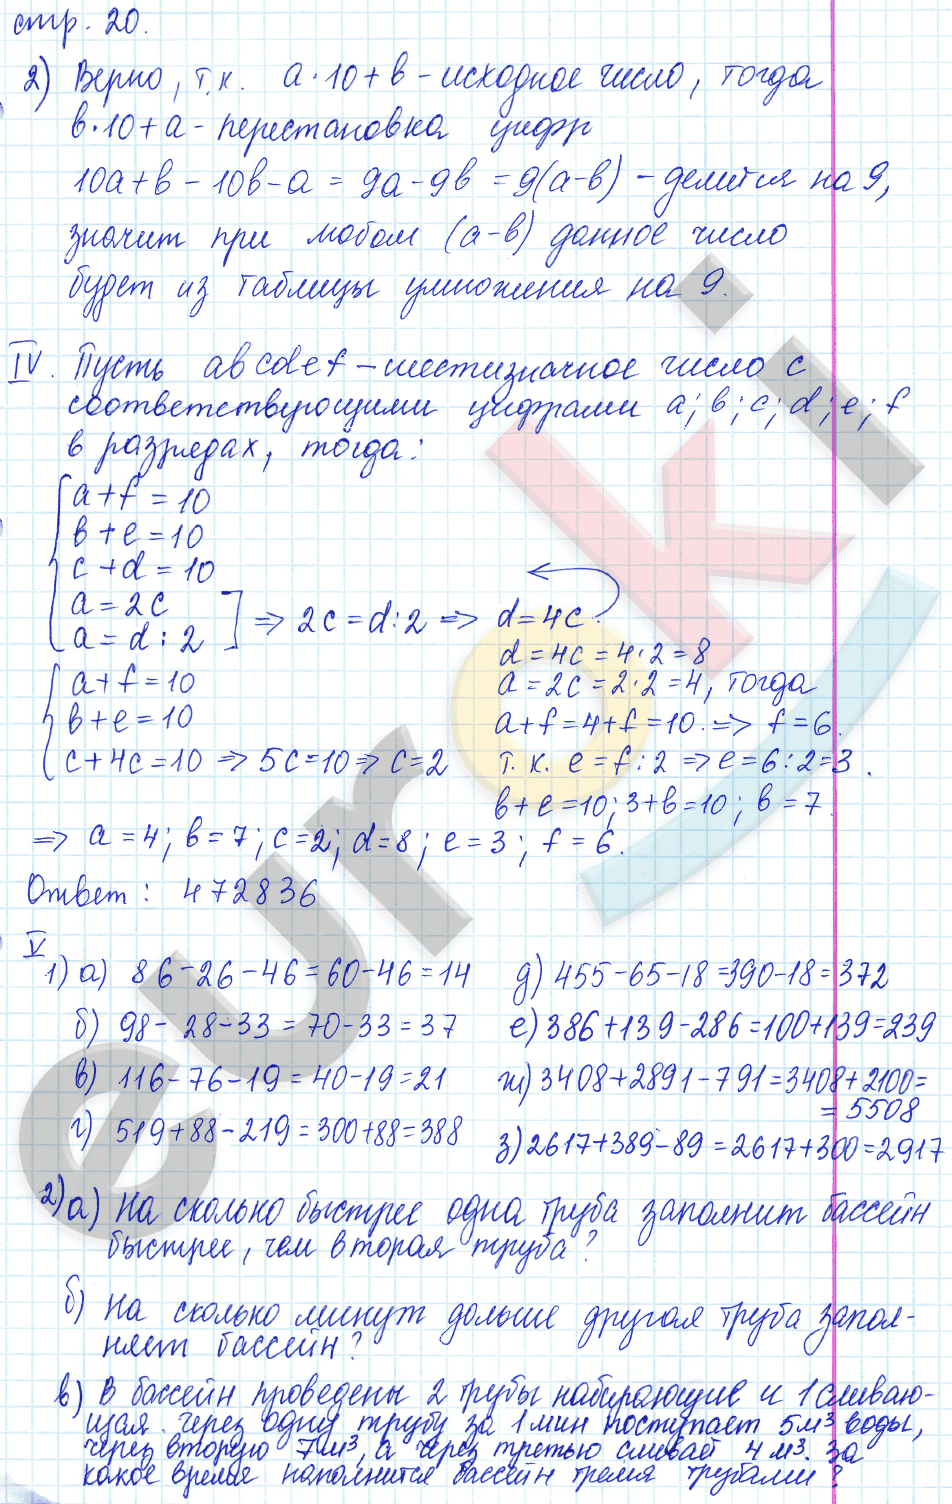 стр. 20.
2) Верно, т.к. a·10+b - исходное число, тогда
b·10+a - перестановка цифр
10a+b-10b-a=9a-9b=9(a-b) - делится на 9,
значит при любом (a-b) данное число
будет из таблицы умножения на 9.
IV. Пусть abcdef - шестизначное число с
соответствующими цифрами a; b; c; d; e; f
в разрядах, тогда:
a+f=10
b+e=10
c+d=10
a=2c
a=d:2 ] => 2c=d:2 => d=4c
d=4c=4·2=8
a+f=10 a=2c=2·2=4, тогда
b+e=10 a+f=4+f=10. => f=6.
c+4c=10 => 5c=10 => c=2 т.к. e=f:2 => e=6:2=3.
b+e=10; 3+b=10; b=7.
=> a=4; b=7; c=2; d=8; e=3; f=6.
Ответ: 472836
V
1) а) 86-26-46=60-46=14 д) 455-65-18=390-18=372
б) 98-28-33=70-33=37 е) 386+139-286=100+139=239
в) 116-76-19=40-19=21 ж) 3408+2891-791=3408+2100=
=5508
г) 519+88-219=300+88=388 з) 2617+389-89=2617+300=2917
2) а) На сколько быстрее одна труба заполнит бассейн
быстрее, чем вторая труба?
б) На сколько минут дольше другая труба запол-
няет бассейн?
в) В бассейн проведены 2 трубы набирающие и 1 сливаю-
щая. через одну трубу за 1 мин поступает 5м³ воды,
через вторую 7м³, а через третью сливает 4 м³. За
какое время наполнится бассейн тремя трубами?
euroki